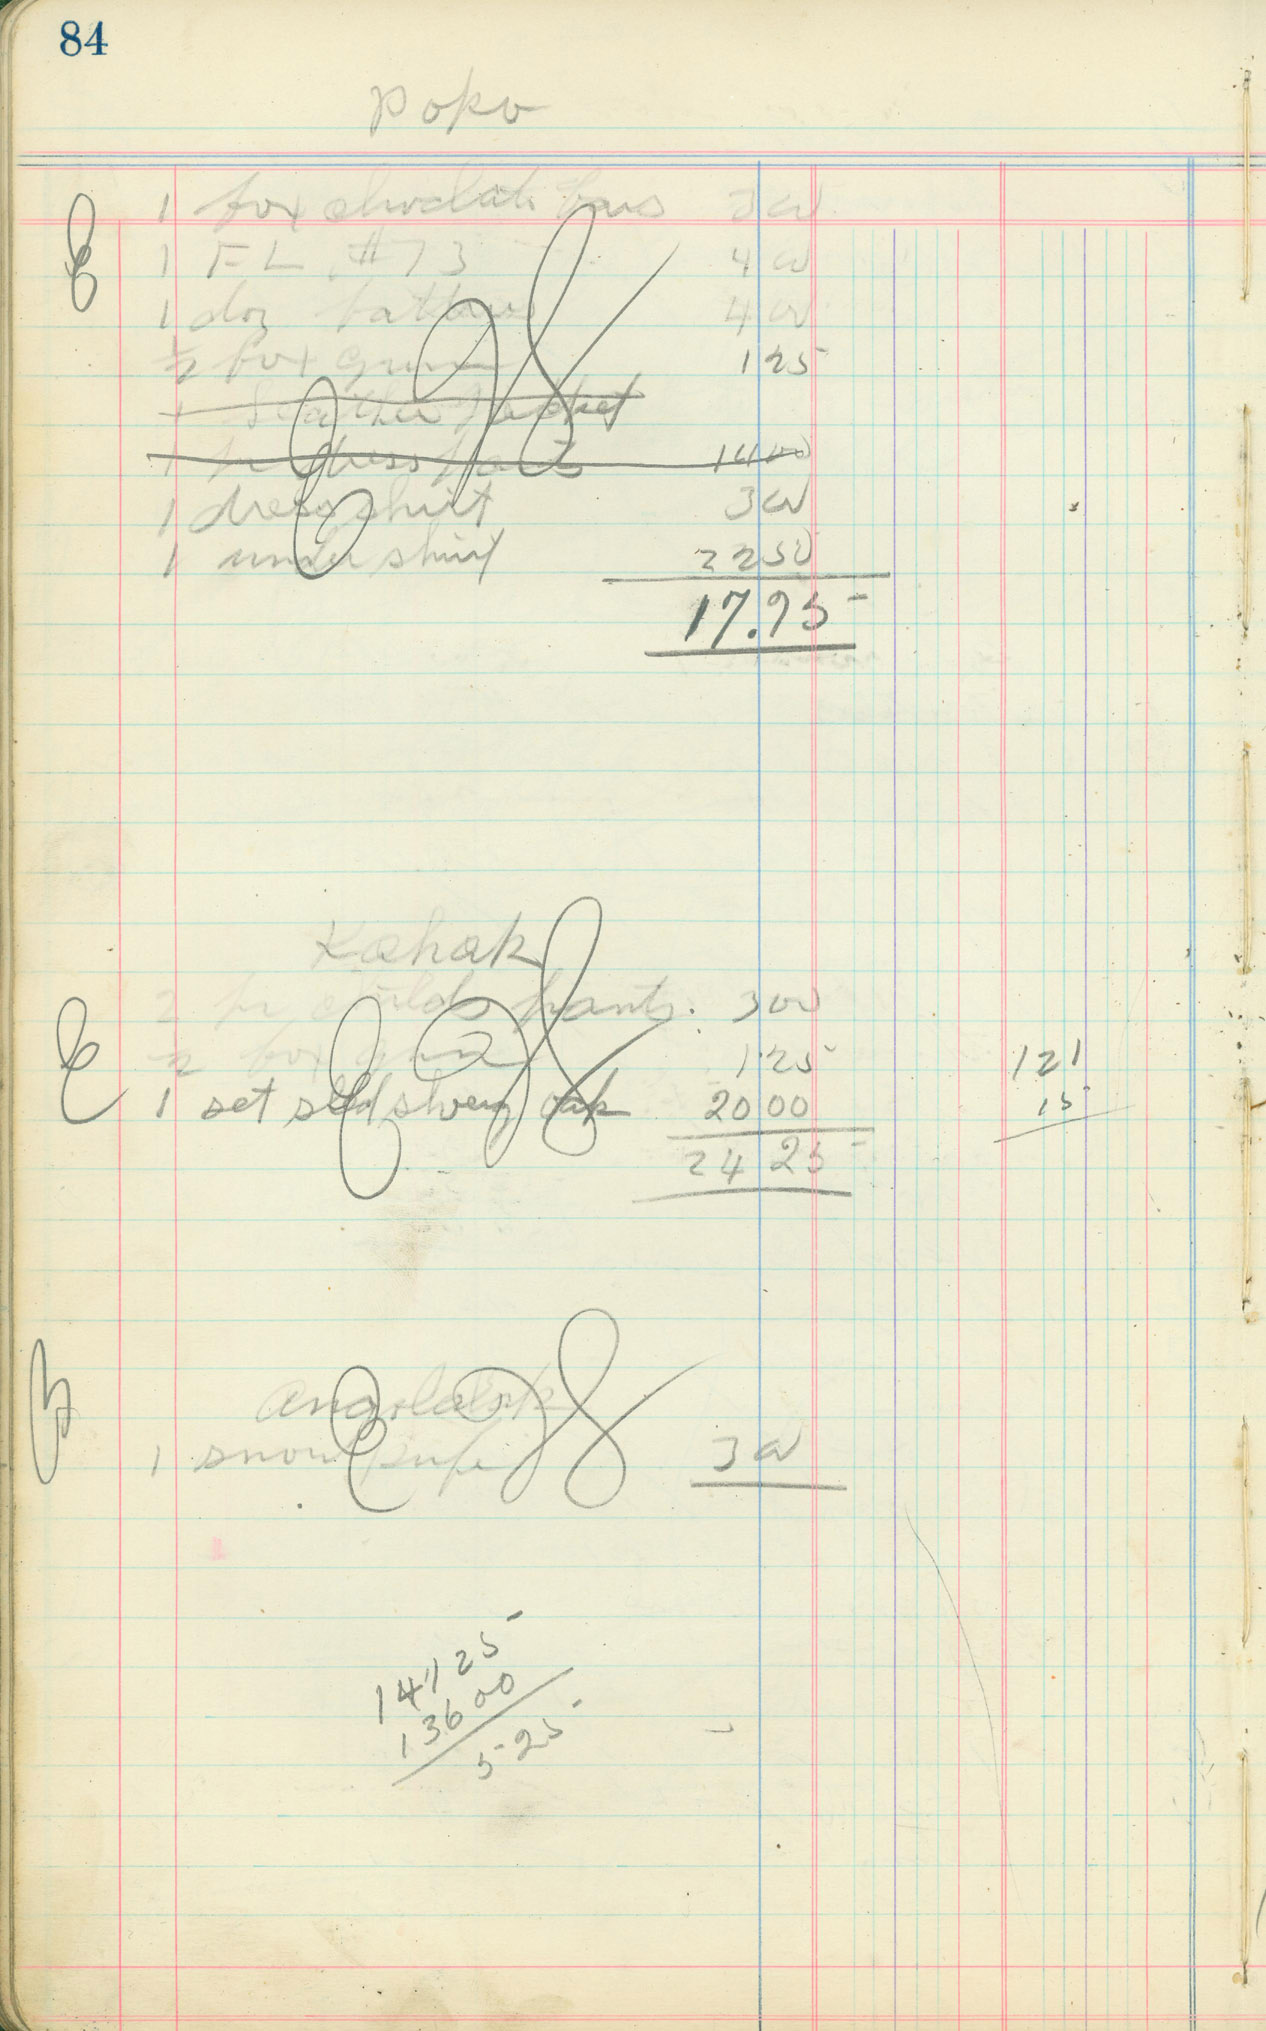 84
Popo
1 box chocolate bars 3 00
1 FL #73 4 00
1 doz batterys 4 00
½ box gum 1 25
1 Leather Jacket
1 pr dress pants 14 00
1 dress shirt 3 00
1 under shirt 2 2 50
17.75
Kahak
2 pr childs pants. 3 00
½ box gum 1 25
1 set sled shoeing oak 20 00
24 25
121
15
1 snow knife 3 00
141 25
136 00
5 25